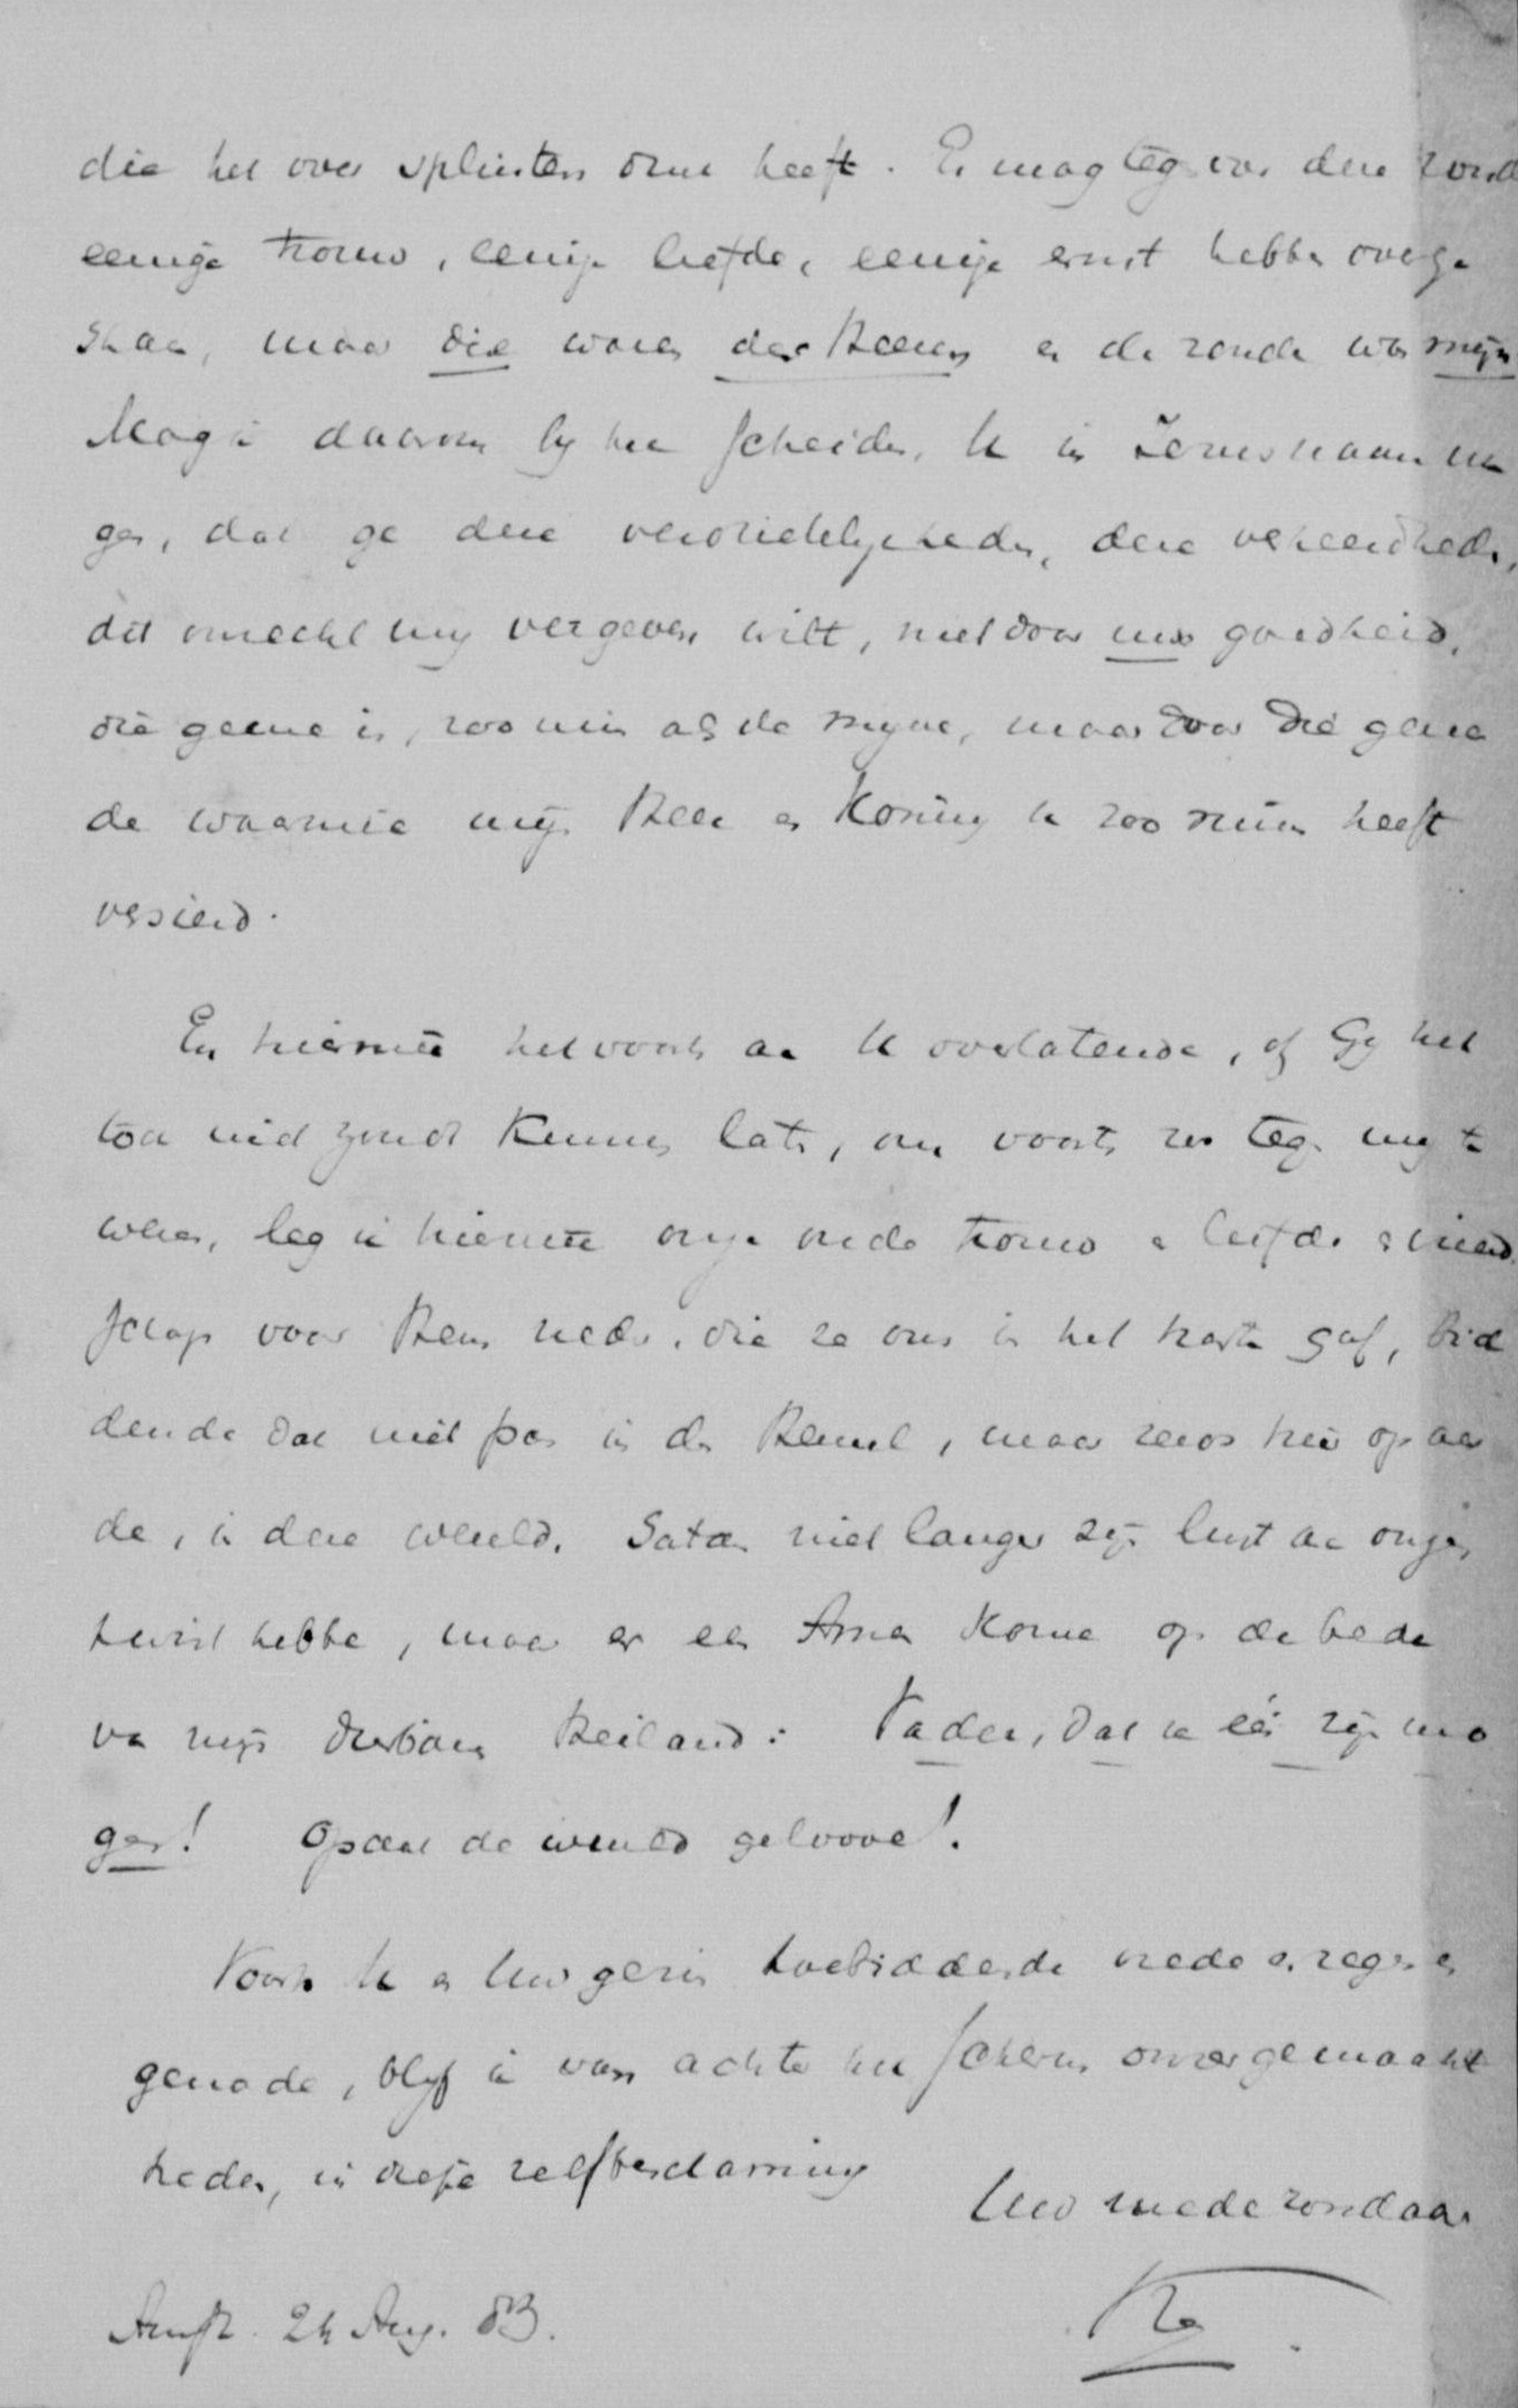 die het over splinters    heeft. Er mag teg over deze zond
eenige trouw, eenige liefde, eenige ernst hebben overge
staan, maar die waren des Heeren en de zonde was mijn
Mag ik daarom bij het scheiden, U in Jezus naam vra
gen, dat ge deze verdrietelijkheden, deze verkeerdheden,
dit onrecht mij vergeven wilt, niet door uw goedheid,
die geene is, zoo min als de mijne, maar door die gena
de waarmee mijn Heer en Koning U zoo ruim heeft
versierd.
En hiermee het voorts aan U overlatende, of Gij het
toa niet zoudt kunnen laten, om voorts zoo tegen mij te
     , leg ik hiermee onze oude trouw en liefde en vriend
schap voor Hem neder, die ze ons in het harte gaf, bid
dende dat niet pas in den Hemel, maar reeds hier op aar
de, in deze wereld, Satan niet langer zijn lust aan onzen
twist hebbe, maar er een Amen kome op de bede
van mijn dierbaren Heiland: Vader, dat ze één zijn mo
gen! Opdat de wereld geloove!
Voorts U en Uw gezin toebiddende vrede en zegen en
genade, blijf ik van achter het scherm onzer gemaakt
heden, in diepe zelfbeschaming
Uw mede zondaar
Amst. 24 Aug. 83.